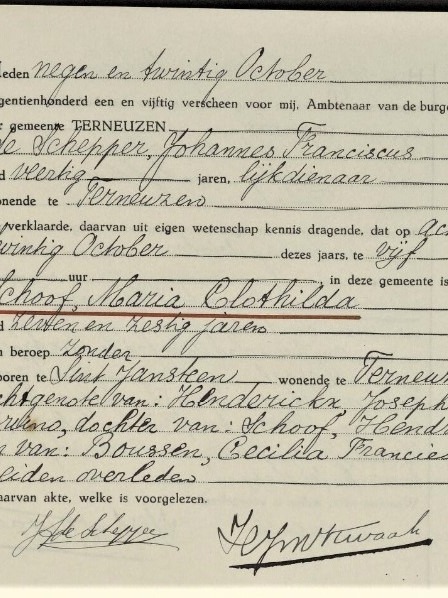 Heden negen en twintig October
gentienhonderd een en vijftig verscheen voor mij, Ambtenaar van de burge
r gemeente TERNEUZEN
de Schepper, Johannes Franciscus
d veertig jaren, lijkdienaar
onende te Terneuzen
verklaarde, daarvan uit eigen wetenschap kennis dragende, dat op ac
wintig October dezes jaars, te vijf
uur in deze gemeente is
choof, Maria Clothilda
d zeven en zestig jaren
n beroep zonder
boren te Sint Jansteen wonende te Terneuz
chtgenote van: Henderickx, Joseph
dochter van: Schoof, Hend
n van: Boussen, Cecilia Francies
eiden overleden
aarvan akte, welke is voorgelezen.
JF de Schepper